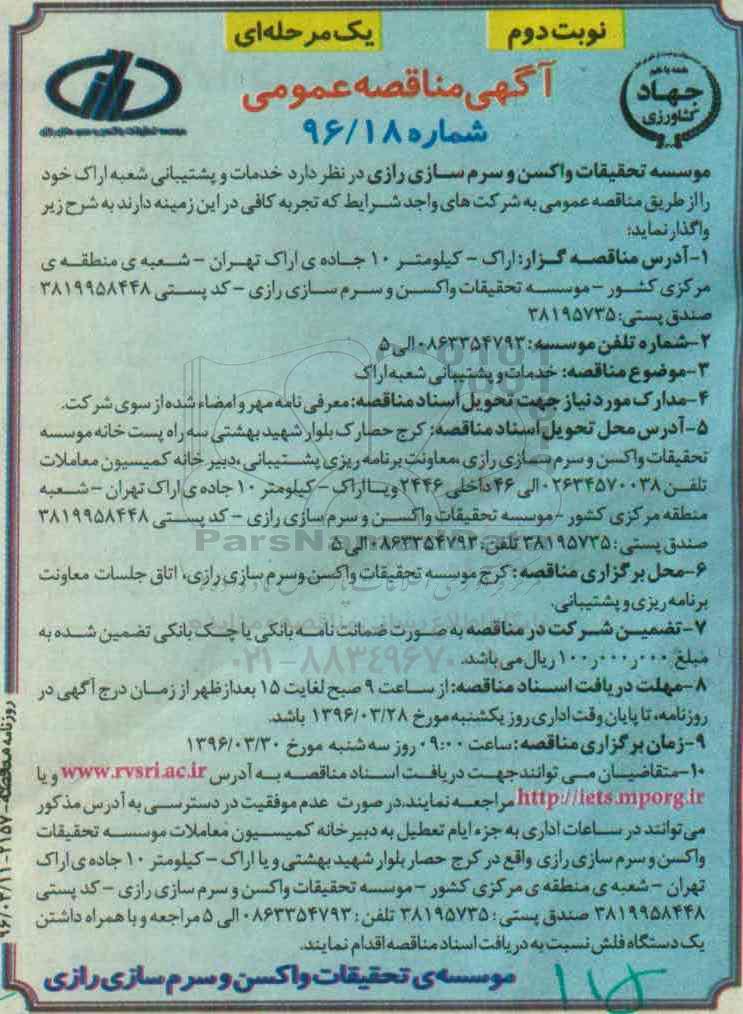 نوبت دوم
یک مرحله‌ای
جهاد کشاورزی
آگهی مناقصه عمومی
شماره ۹۶/۱۸
موسسه تحقیقات واکسن و سرم سازی رازی در نظر دارد خدمات و پشتیبانی شعبه اراک خود
را از طریق مناقصه عمومی به شرکت های واجد شرایط که تجربه کافی در این زمینه دارند به شرح زیر
واگذار نماید:
۱-آدرس مناقصه گزار: اراک - کیلومتر ۱۰ جاده ی اراک تهران - شعبه ی منطقه ی
مرکزی کشور - موسسه تحقیقات واکسن و سرم سازی رازی - کد پستی ۳۸۱۹۹۵۸۴۴۸
صندق پستی: ۳۸۱۹۵۷۳۵
۲-شماره تلفن موسسه: ۰۸۶۳۳۵۴۷۹۳ الی ۵
۳-موضوع مناقصه: خدمات و پشتیبانی شعبه اراک
۴-مدارک مورد نیاز جهت تحویل اسناد مناقصه: معرفی نامه مهر و امضاء شده از سوی شرکت.
۵-آدرس محل تحویل اسناد مناقصه: کرج حصارک بلوار شهید بهشتی سه راه پست خانه موسسه
تحقیقات واکسن و سرم سازی رازی ،معاونت برنامه ریزی پشتیبانی ،دبیر خانه کمیسیون معاملات
تلفن ۰۲۶۳۴۵۷۰۰۳۸ الی ۴۶ داخلی ۲۴۴۶ و یا اراک - کیلومتر ۱۰ جاده ی اراک تهران - شعبه
منطقه مرکزی کشور - موسسه تحقیقات واکسن و سرم سازی رازی - کد پستی ۳۸۱۹۹۵۸۴۴۸
صندق پستی: ۳۸۱۹۵۷۳۵ تلفن: ۰۸۶۳۳۵۴۷۹۳ الی ۵
ParsNamadData
۶-محل برگزاری مناقصه: کرج موسسه تحقیقات واکسن وسرم سازی رازی، اتاق جلسات معاونت
برنامه ریزی و پشتیبانی.
۷-تضمین شرکت در مناقصه به صورت ضمانت نامه بانکی یا چک بانکی تضمین شده به
مبلغ ۱۰۰٫۰۰۰٫۰۰۰ ریال می باشد.
۰۲۱-۸۸۳۴۹۶۷۰
۸-مهلت دریافت اسناد مناقصه: از ساعت ۹ صبح لغایت ۱۵ بعدازظهر از زمان درج آگهی در
روزنامه، تا پایان وقت اداری روز یکشنبه مورخ ۱۳۹۶/۰۳/۲۸ باشد.
۹-زمان برگزاری مناقصه: ساعت ۰۹:۰۰ روز سه شنبه مورخ ۱۳۹۶/۰۳/۳۰
۱۰-متقاضیان می توانندجهت دریافت اسناد مناقصه به آدرس www.rvsri.ac.ir و یا
http://iets.mporg.ir مراجعه نمایند.در صورت عدم موفقیت در دسترسی به آدرس مذکور
می توانند در ساعات اداری به جزء ایام تعطیل به دبیر خانه کمیسیون معاملات موسسه تحقیقات
واکسن و سرم سازی رازی واقع در کرج حصار بلوار شهید بهشتی و یا اراک - کیلومتر ۱۰ جاده ی اراک
تهران - شعبه ی منطقه ی مرکزی کشور - موسسه تحقیقات واکسن و سرم سازی رازی - کد پستی
۳۸۱۹۹۵۸۴۴۸ صندق پستی: ۳۸۱۹۵۷۳۵ تلفن: ۰۸۶۳۳۵۴۷۹۳ الی ۵ مراجعه و با همراه داشتن
یک دستگاه فلش نسبت به دریافت اسناد مناقصه اقدام نمایند.
موسسه‌ی تحقیقات واکسن و سرم سازی رازی